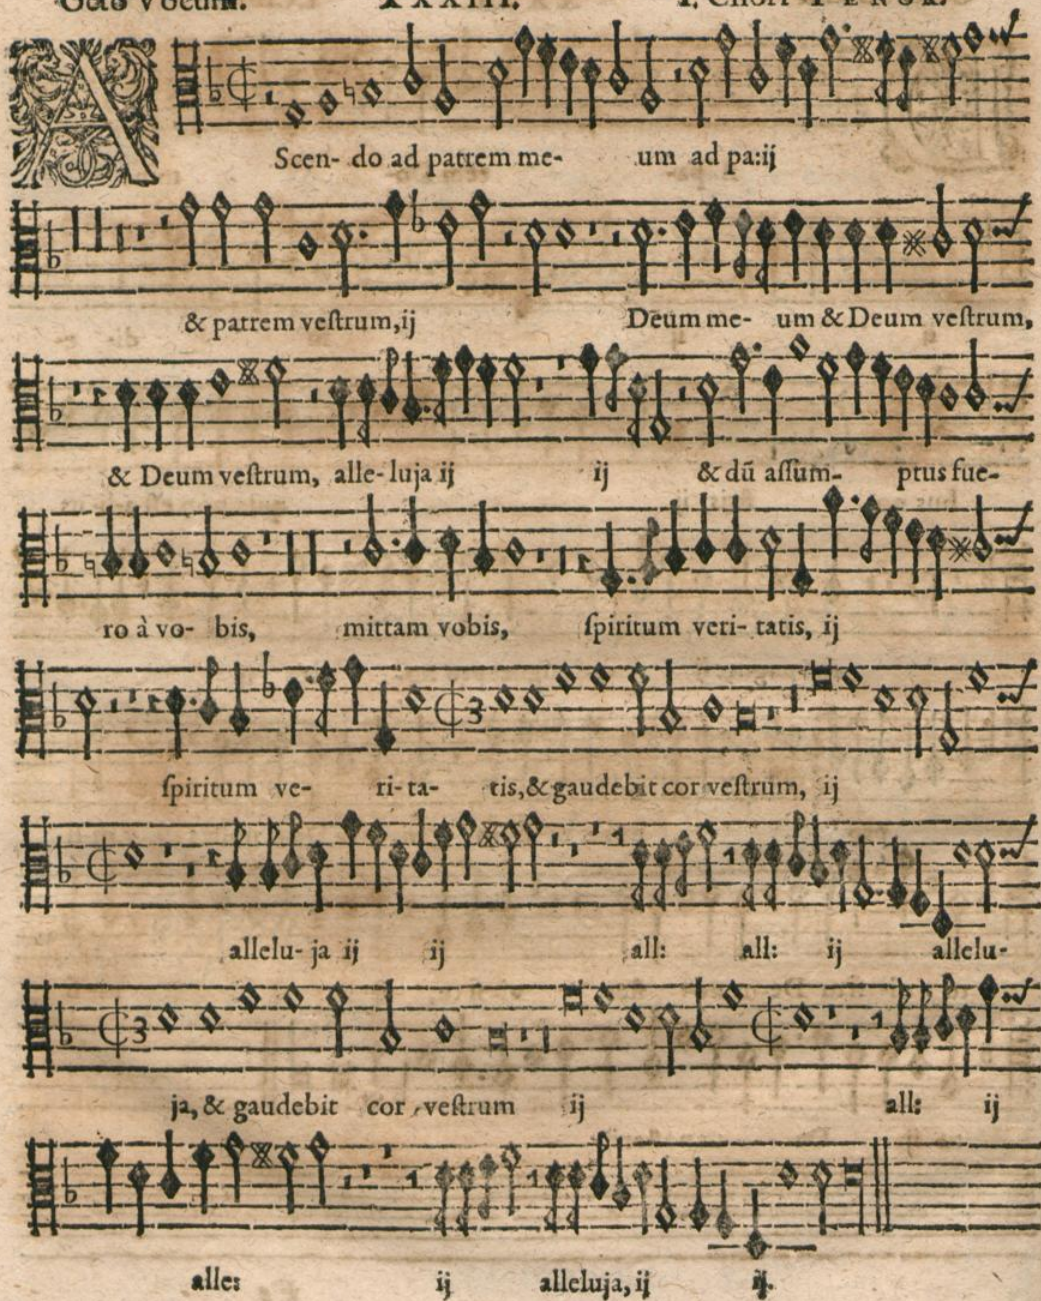 Octo Vocum. LXXIII. I. Chori TENOR.
AScen- do ad patrem me- um ad pa:ij
& patrem vestrum,ij Deum me- um & Deum vestrum,
& Deum vestrum, alle-luja ij ij & dũ assum- ptus fue-
ro à vo- bis, mittam vobis, spiritum veri- tatis, ij
spiritum ve- ri- ta- tis,& gaudebit cor vestrum, ij
allelu- ja ij ij all: all: ij allelu-
ja, & gaudebit cor vestrum ij all: ij
alle: ij alleluja, ij ij.